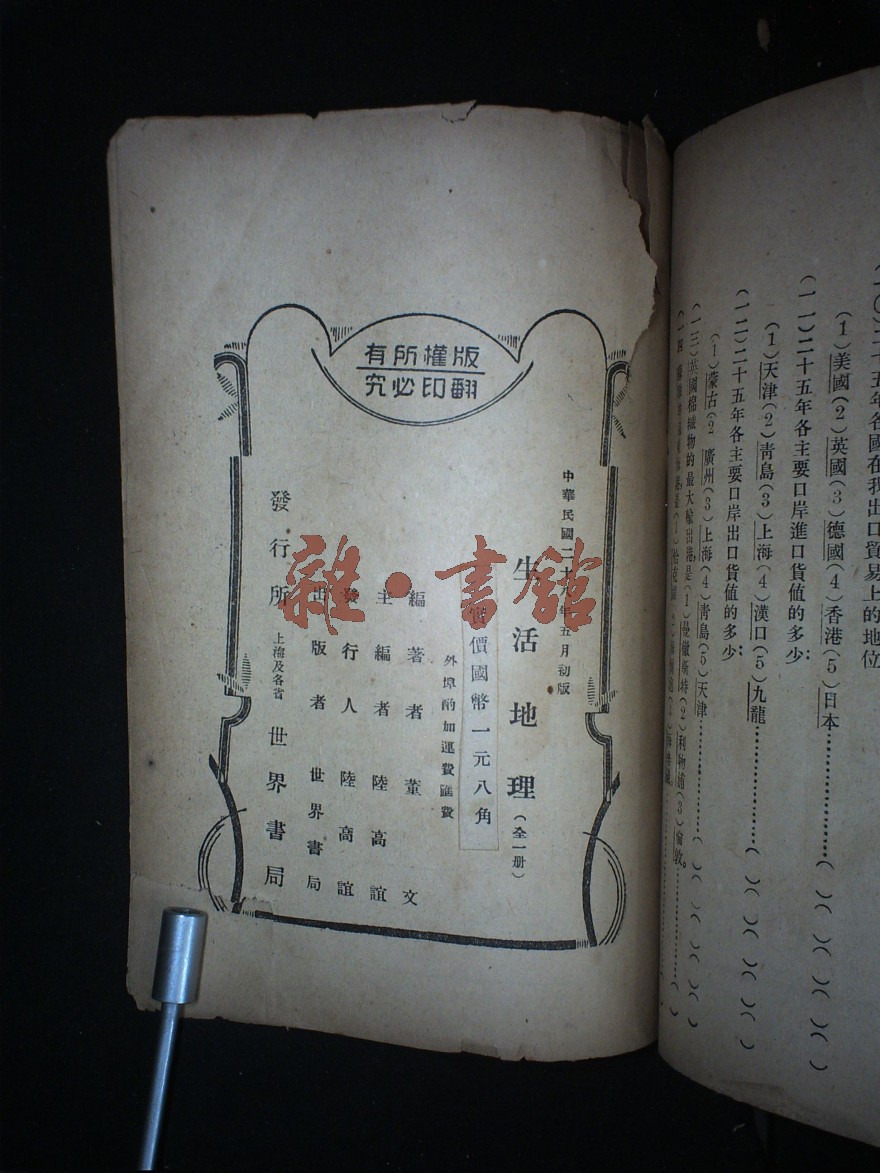 (1)美國(2)英國(3)德國(4)香港(5)日本……………( )( )( )( )( )
(一一)二十五年各主要口岸進口貨值的多少:
(1)天津(2)青島(3)上海(4)漢口(5)九龍……………( )( )( )( )( )
(一二)二十五年各主要口岸出口貨值的多少:
(1)蒙古(2)廣州(3)上海(4)青島(5)天津……………( )( )( )( )( )
(一三)英國棉織物的最大輸出港,是(1)曼徹斯特(2)利物浦(3)倫敦。
版權所有
翻印必究
中華民國二十九年五月初版
生活地理(全一册)
實價國幣一元八角
外埠酌加運費匯費
編著者 董文
主編者 陸高誼
發行人 陸高誼
出版者 世界書局
發行所 上海及各省 世界書局
雜·書館